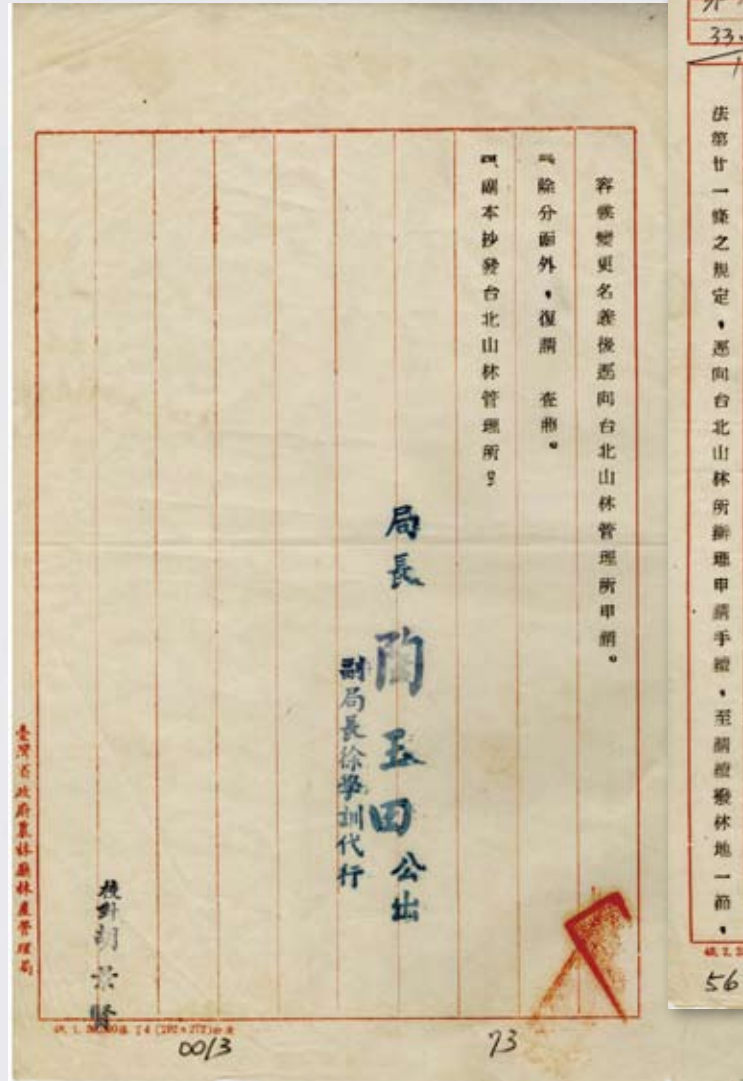 33
法第廿一條之規定，逕向台北山林所辦理申請手續，至請續撥林地一節，
56
容俟變更名義後逕向台北山林管理所申請。
三、除分函外，復請　查照。
四、副本抄發台北山林管理所。
局長 陶玉田 公出
副局長徐學訓代行
校對 胡景賢
臺灣省政府農林廳林產管理局
0013
73